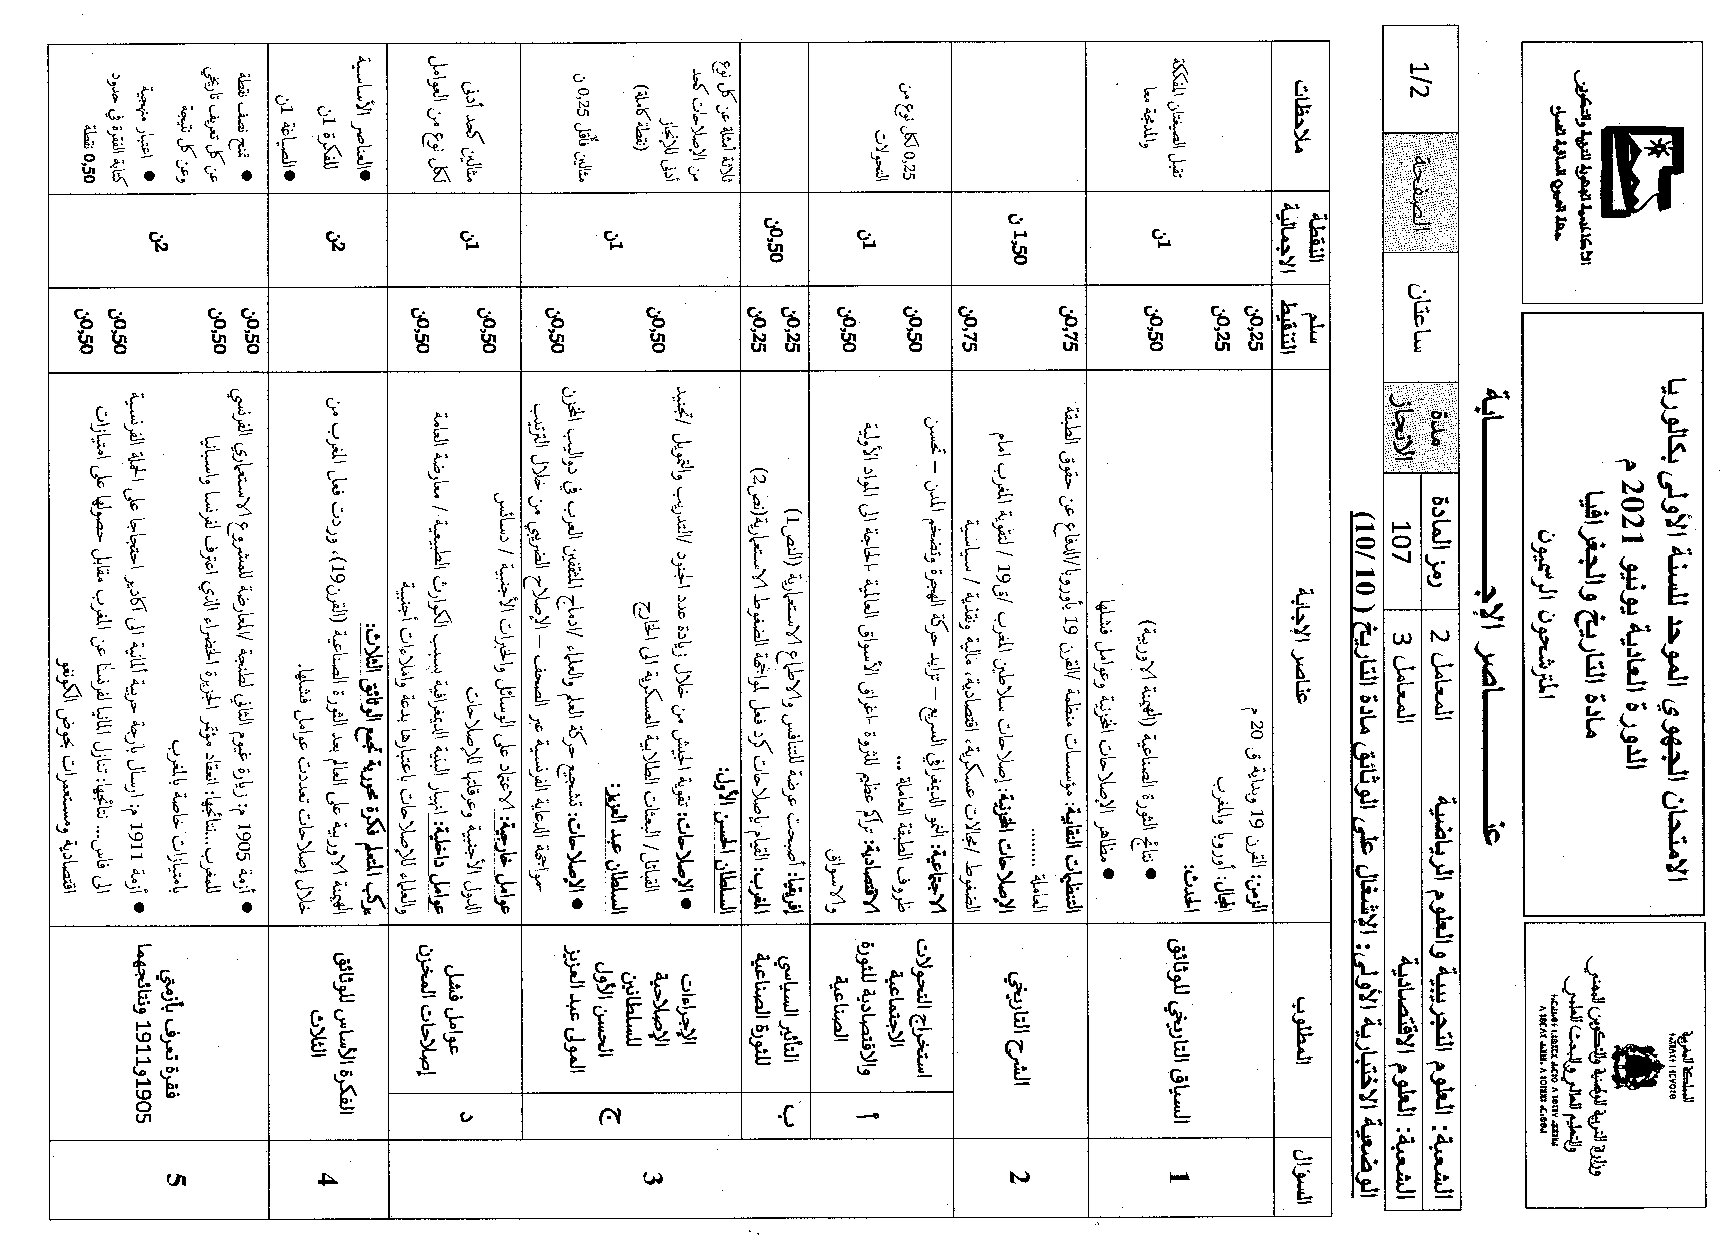 المملكة المغربية
وزارة التربية الوطنية والتكوين المهني
والتعليم العالي والبحث العلمي
الامتحان الجهوي الموحد للسنة الأولى بكالوريا
الدورة العادية يونيو 2021 م
مادة التاريخ والجغرافيا
المترشحون الرسميون
الأكاديمية الجهوية للتربية والتكوين
جهة العيون الساقية الحمراء
عنـــــاصر الإجـــــابة
الشعبة: العلوم التجريبية والعلوم الرياضية
المعامل 2
رمز المادة
مدة الانجاز
ساعتان
الصفحة
1/2
الشعبة: العلوم الاقتصادية
المعامل 3
107
الوضعية الاختبارية الأولى: الاشتغال على الوثائق مادة التاريخ (10/10)
السؤال
المطلوب
عناصر الإجابة
سلم التنقيط
النقطة الاجمالية
ملاحظات
1
السياق التاريخي للوثائق
الزمن: القرن 19 وبداية ق 20 م
المجال: أوروبا والمغرب
الحدث:
● نتائج الثورة الصناعية (الهيمنة الاوربية)
● مظاهر الإصلاحات المخزنية وعوامل فشلها
0,25ن
0,25ن
0,50ن
1ن
تقبل الصيغتان المفككة
والمدمجة معا
2
الشرح التاريخي
التنظيمات النقابية: مؤسسات منظمة /القرن 19 بأوروبا/الدفاع عن حقوق الطبقة
العاملة ........
الإصلاحات المخزنية: إصلاحات سلاطين المغرب /ق19 /لتقوية المغرب امام
الضغوط /مجالات عسكرية، اقتصادية، مالية ونقدية / سياسية
0,75ن
0,75ن
1,50 ن
3
أ
استخراج التحولات
الاجتماعية
والاقتصادية للثورة
الصناعية
الاجتماعية: النمو الديمغرافي السريع – تزايد حركة الهجرة وتضخم المدن – تحسن
ظروف الطبقة العاملة ...
الاقتصادية: تراكم عظيم للثروة -اغراق الأسواق العالمية -الحاجة الى المواد الأولية
والاسواق
0,50ن
0,50ن
1ن
0,25 لكل نوع من
التحولات
ب
التأثير السياسي
للثورة الصناعية
إفريقيا: أصبحت عرضة للتنافس والاطماع الاستعمارية (النص1)
المغرب: القيام بإصلاحات كرد فعل لمواجهة الضغوط الاستعمارية(نص2)
0,25ن
0,25ن
0,50ن
ج
الإجراءات
الإصلاحية
للسلطانين
الحسن الأول
المولى عبد العزيز
السلطان الحسن الأول:
● الإصلاحات: تقوية الجيش من خلال زيادة عدد الجنود /التدريب والتمويل /تجنيد
القبائل/ البعثات الطلابية العسكرية الى الخارج
السلطان عبد العزيز:
● الإصلاحات: تشجيع حركة العلم والعلماء /ادماج المثقفين العرب في دواليب المخزن
مواجهة الدعاية الفرنسية عبر الصحف – الإصلاح الضريبي من خلال الترتيب
0,50ن
0,50ن
1ن
ثلاثة أمثلة عن كل نوع
من الإصلاحات كحد
أدنى للإنجاز
(نقطة كاملة)
مثالين فأقل 0,25 ن
د
عوامل فشل
إصلاحات المخزن
عوامل خارجية: الاعتماد على الوسائل والخبرات الأجنبية / دسائس
الدول الأجنبية وعرقلتها للإصلاحات
عوامل داخلية: انهيار البنية الديمغرافية بسبب الكوارث الطبيعية / معارضة العامة
والعلماء للإصلاحات باعتبارها بدعة واملاءات أجنبية
0,50ن
0,50ن
1ن
مثالين كحد أدنى
لكل نوع من العوامل
4
الفكرة الأساس للوثائق
الثلاث
يركب المتعلم فكرة محورية تجمع الوثائق الثلاث:
الهيمنة الاوربية على العالم بعد الثورة الصناعية (القرن19)، وردت فعل المغرب من
خلال إصلاحات تعددت عوامل فشلها.
2ن
●العناصر الأساسية
للفكرة 1ن
●الصياغة 1ن
5
فقرة تعرف بأزمتي
1905و1911 ونتائجهما
● أزمة 1905 م: زيارة غيوم الثاني لطنجة /المعارضة للمشروع الاستعماري الفرنسي
للمغرب...نتائجها: انعقاد مؤتمر الجزيرة الخضراء الذي اعترف لفرنسا واسبانيا
بامتيازات خاصة بالمغرب
● أزمة 1911 م: ارسال بارجة حربية المانية الى اكادير احتجاجا على الحملة الفرنسية
الى فاس... نتائجها: تنازل المانيا لفرنسا عن المغرب مقابل حصولها على امتيازات
اقتصادية ومستعمرات بحوض الكونغو
0,50ن
0,50ن
0,50ن
0,50ن
2ن
● تمنح نصف نقطة
عن كل تعريف تاريخي
وعن كل نتيجة
● اعتبار منهجية
كتابة الفقرة في حدود
0,50 نقطة